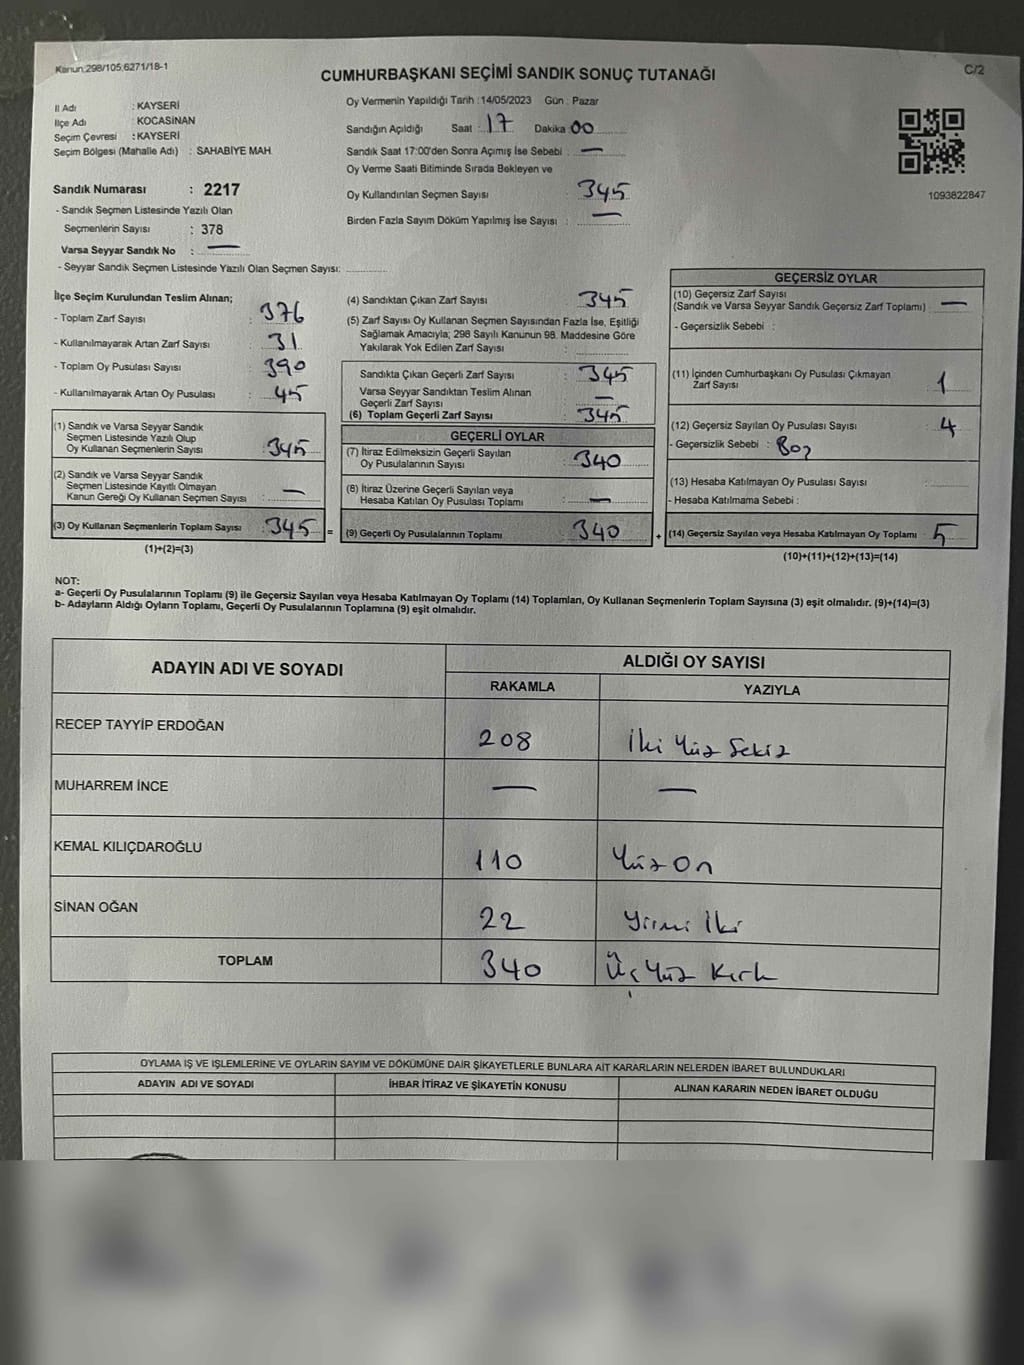 Kanun:298/105;6271/18-1
C/2
CUMHURBAŞKANI SEÇİMİ SANDIK SONUÇ TUTANAĞI
İl Adı : KAYSERİ
İlçe Adı : KOCASİNAN
Seçim Çevresi : KAYSERİ
Seçim Bölgesi (Mahalle Adı) : SAHABİYE MAH.
Sandık Numarası : 2217
- Sandık Seçmen Listesinde Yazılı Olan
Seçmenlerin Sayısı : 378
Varsa Seyyar Sandık No : —
- Seyyar Sandık Seçmen Listesinde Yazılı Olan Seçmen Sayısı:
Oy Vermenin Yapıldığı Tarih :14/05/2023 Gün : Pazar
Sandığın Açıldığı Saat : 17 Dakika : 00
Sandık Saat 17:00'den Sonra Açımış İse Sebebi : —
Oy Verme Saati Bitiminde Sırada Bekleyen ve
Oy Kullandırılan Seçmen Sayısı : 345
Birden Fazla Sayım Döküm Yapılmış İse Sayısı : —
1093822847
İlçe Seçim Kurulundan Teslim Alınan;
- Toplam Zarf Sayısı : 376
- Kullanılmayarak Artan Zarf Sayısı : 31
- Toplam Oy Pusulası Sayısı : 390
- Kullanılmayarak Artan Oy Pusulası : 45
(1) Sandık ve Varsa Seyyar Sandık
Seçmen Listesinde Yazılı Olup
Oy Kullanan Seçmenlerin Sayısı : 345
(2) Sandık ve Varsa Seyyar Sandık
Seçmen Listesinde Kayıtlı Olmayan
Kanun Gereği Oy Kullanan Seçmen Sayısı : —
(3) Oy Kullanan Seçmenlerin Toplam Sayısı : 345 =
(1)+(2)=(3)
(4) Sandıktan Çıkan Zarf Sayısı : 345
(5) Zarf Sayısı Oy Kullanan Seçmen Sayısından Fazla İse, Eşitliği
Sağlamak Amacıyla; 298 Sayılı Kanunun 98. Maddesine Göre
Yakılarak Yok Edilen Zarf Sayısı :
Sandıkta Çıkan Geçerli Zarf Sayısı : 345
Varsa Seyyar Sandıktan Teslim Alınan
Geçerli Zarf Sayısı : —
(6) Toplam Geçerli Zarf Sayısı : 345
GEÇERLİ OYLAR
(7) İtiraz Edilmeksizin Geçerli Sayılan
Oy Pusulalarının Sayısı : 340
(8) İtiraz Üzerine Geçerli Sayılan veya
Hesaba Katılan Oy Pusulası Toplamı : —
(9) Geçerli Oy Pusulalarının Toplamı : 340 +
GEÇERSİZ OYLAR
(10) Geçersiz Zarf Sayısı
(Sandık ve Varsa Seyyar Sandık Geçersiz Zarf Toplamı) : —
- Geçersizlik Sebebi :
(11) İçinden Cumhurbaşkanı Oy Pusulası Çıkmayan
Zarf Sayısı 1
(12) Geçersiz Sayılan Oy Pusulası Sayısı : 4
- Geçersizlik Sebebi : Boş
(13) Hesaba Katılmayan Oy Pusulası Sayısı :
- Hesaba Katılmama Sebebi :
(14) Geçersiz Sayılan veya Hesaba Katılmayan Oy Toplamı : 5
(10)+(11)+(12)+(13)=(14)
NOT:
a- Geçerli Oy Pusulalarının Toplamı (9) ile Geçersiz Sayılan veya Hesaba Katılmayan Oy Toplamı (14) Toplamları, Oy Kullanan Seçmenlerin Toplam Sayısına (3) eşit olmalıdır. (9)+(14)=(3)
b- Adayların Aldığı Oyların Toplamı, Geçerli Oy Pusulalarının Toplamına (9) eşit olmalıdır.
ADAYIN ADI VE SOYADI
ALDIĞI OY SAYISI
RAKAMLA YAZIYLA
RECEP TAYYİP ERDOĞAN 208 İki Yüz Sekiz
MUHARREM İNCE — —
KEMAL KILIÇDAROĞLU 110 Yüz On
SİNAN OĞAN 22 Yirmi İki
TOPLAM 340 Üç Yüz Kırk
OYLAMA İŞ VE İŞLEMLERİNE VE OYLARIN SAYIM VE DÖKÜMÜNE DAİR ŞİKAYETLERLE BUNLARA AİT KARARLARIN NELERDEN İBARET BULUNDUKLARI
ADAYIN ADI VE SOYADI İHBAR İTİRAZ VE ŞİKAYETİN KONUSU ALINAN KARARIN NEDEN İBARET OLDUĞU